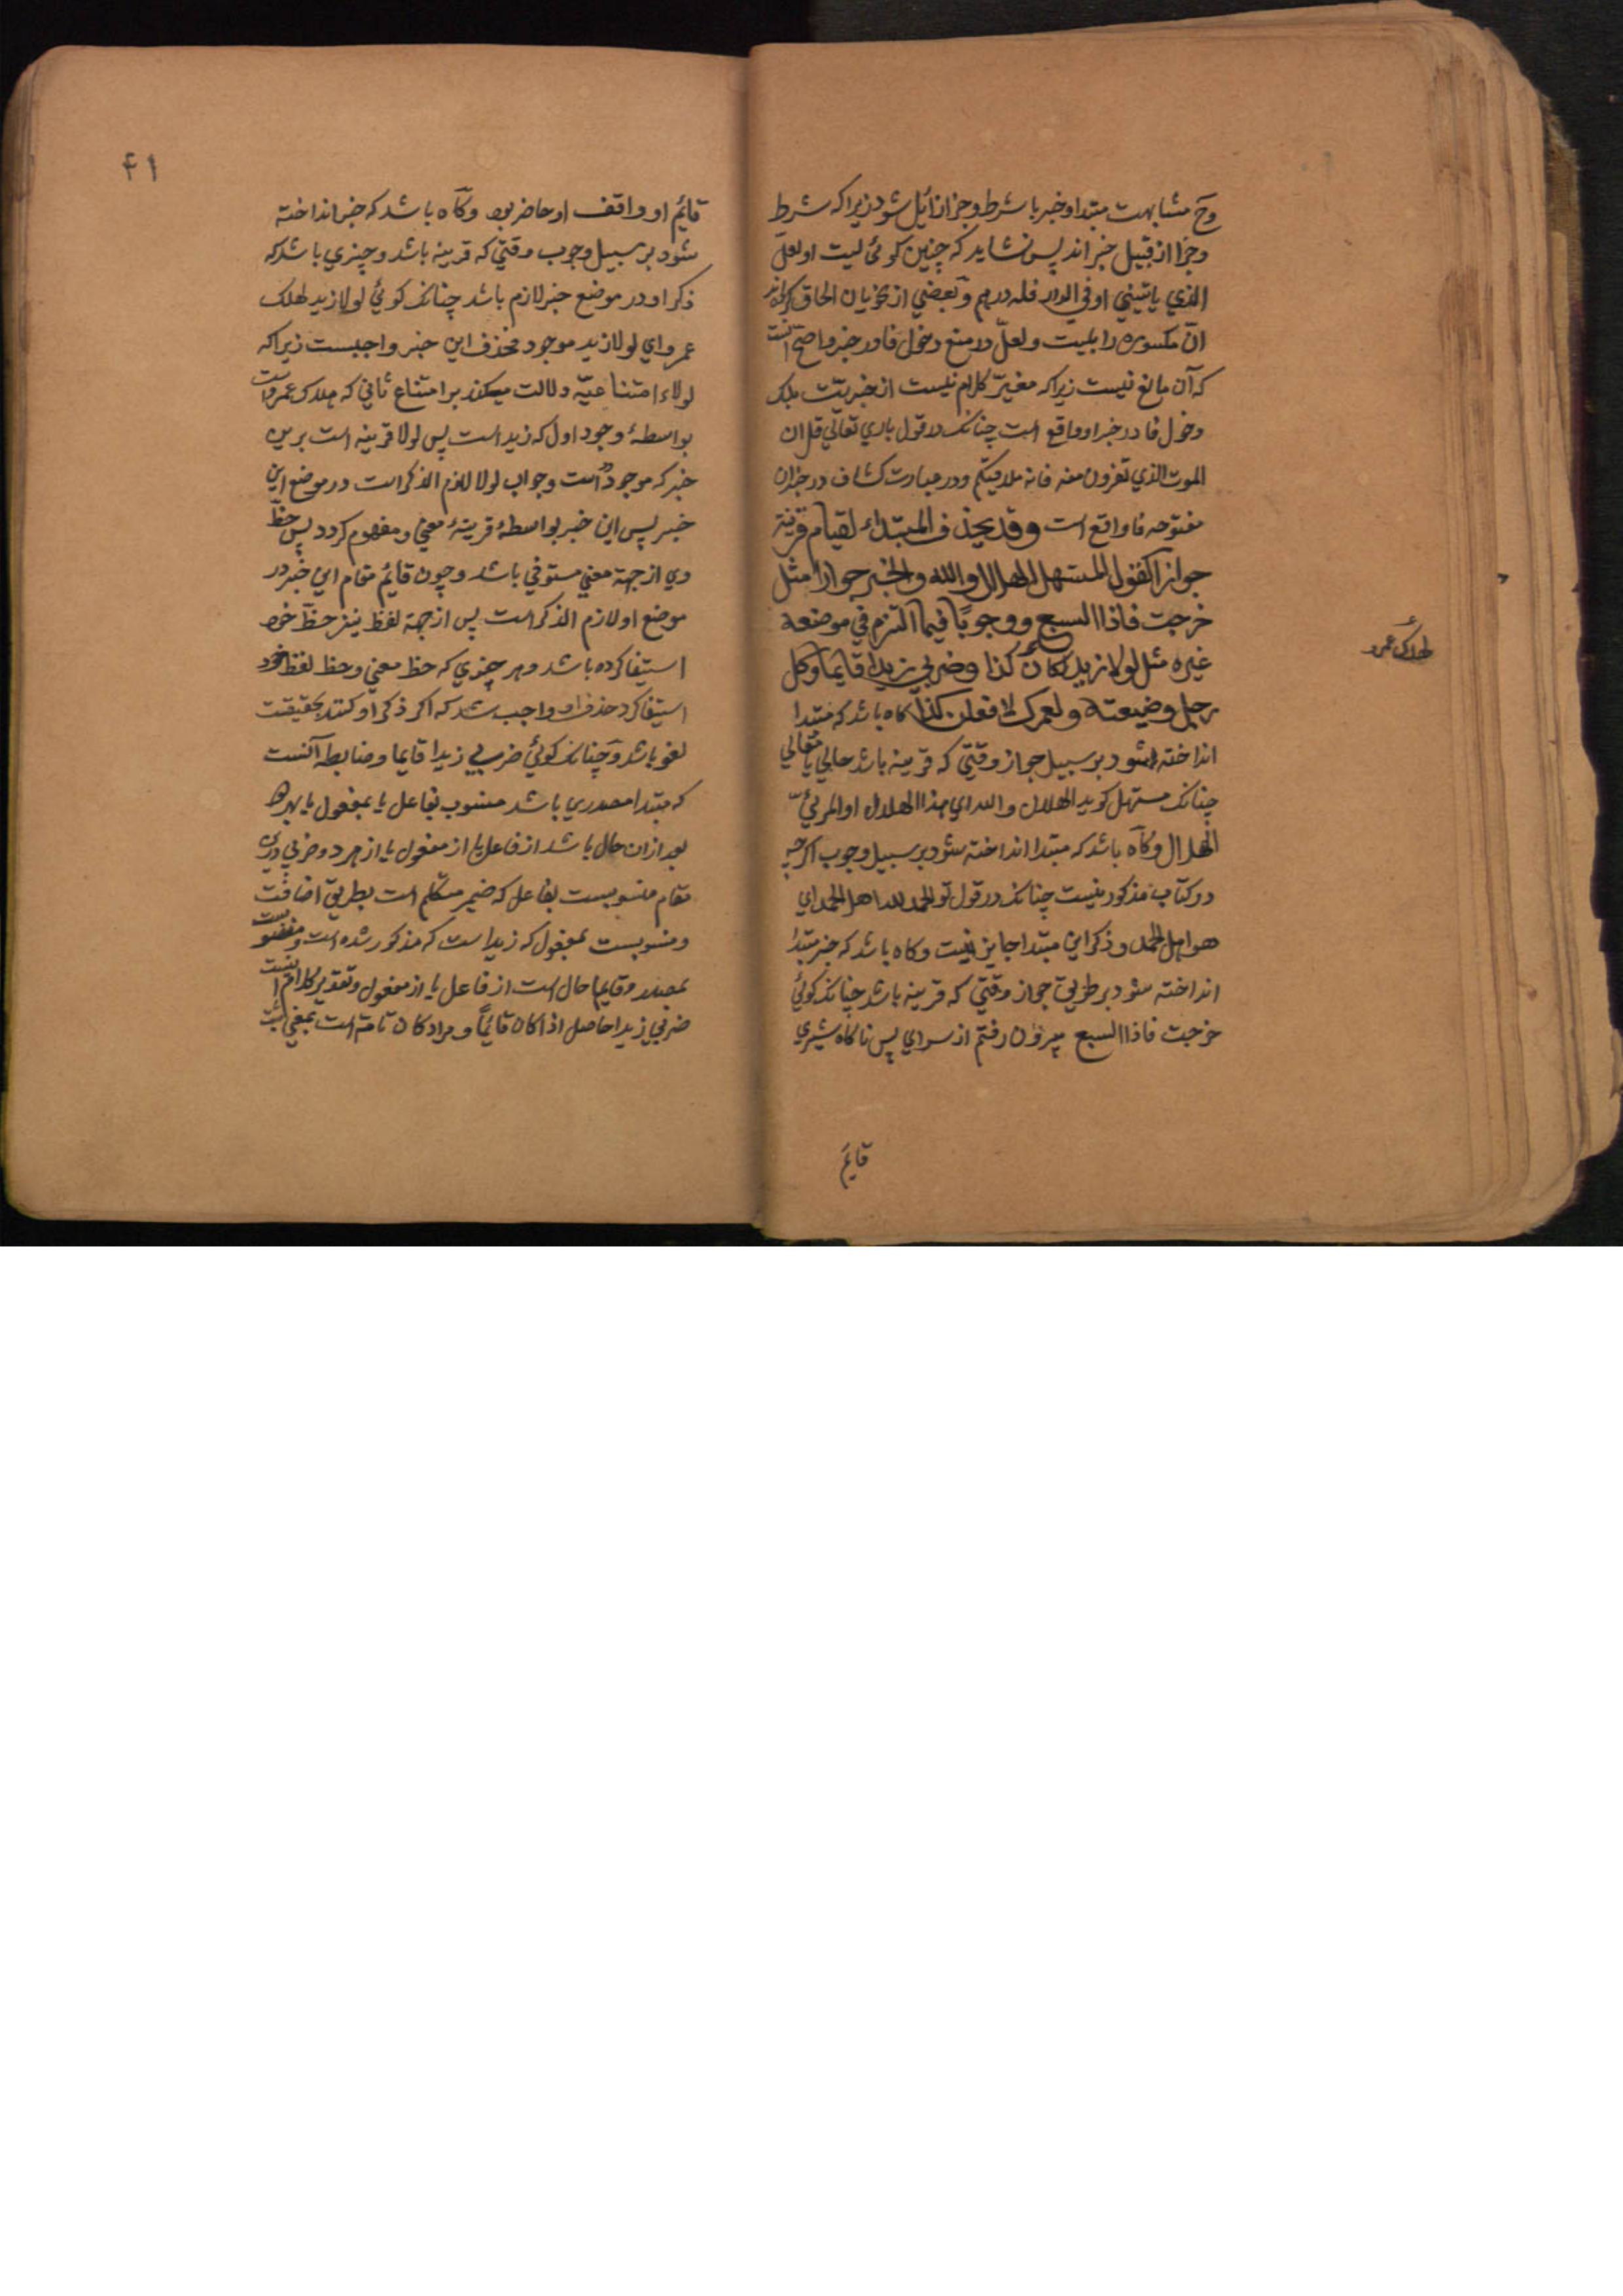 وح مشابهت مبتدا و خبر با شرط و جزا زائل شود زیرا که شرط
و جزا از قبیل خبر اند پس نشاید که چنین کوئی لیت او لعل
الذي یاتیني او في الدار فله درهم و بعضي از نحویان الحاق کرده‌اند
انّ مکسوره را بلیت و لعلّ در منع دخول فا در خبر و اصح آنست
که آن مانع نیست زیرا که مغیرّ کلام نیست از خبریّت بلک
دخول فا در خبر او واقع است چنانک در قول باري تعالي قل ان
الموت الذي تفرون منه فانه ملاقیکم و در عبارت کشاف در خبر ان
مفتوحه فا واقع است وقد يحذف المبتداء لقيام قرينة
جوازا كقول المستهل الهلال والله والخبر جوازا مثل
خرجت فاذا السبع ووجوبًا فيما التزم في موضعه
غيره مثل لولا زيد لكان كذا وضربي زيدا قايما وكل
رجل وضيعته ولعمرك لافعلن كذا کاه باشد که مبتدا
انداخته شود بر سبیل جواز وقتي که قرینه باشد حالي یا مقالي
چنانک مستهل کوید الهلال والله اي هذا الهلال او المرئيّ
الهلال و کاه باشد که مبتدا انداخته شود بر سبیل وجوب اکرچه
در کتاب مذکور نیست چنانک در قول تو الحمد لله اهل الحمد اي
هو اهل الحمد و ذکر این مبتدا جایز نیست و کاه باشد که خبر مبتدا
انداخته شود بر طریق جواز وقتي که قرینه باشد چنانک کوئي
خرجت فاذا السبع بیرون رفتم از سراي پس ناکاه شیري
قایم
لهلاک عمرو
۴۱
قائم او واقف او حاضر بود و کاه باشد که خبر انداخته
شود بر سبیل وجوب وقتي که قرینه باشد و چیزي باشد که
ذکر او در موضع خبر لازم باشد چنانک کوئي لولا زید لهلک
عمرو اي لولا زید موجود فحذف این خبر واجبست زیرا که
لولاء امتناعیّه دلالت میکند بر امتناع ثاني که هلاک عمروست
بواسطهٔ وجود اول که زید است پس لولا قرینه است برین
خبر که موجود است و جواب لولا لازم الذکر است در موضع این
خبر پس این خبر بواسطهٔ قرینهٔ معني و مفهوم کردد پس حظّ
وي از جهة معني مستوفي باشد و چون قائم مقام این خبر در
موضع او لازم الذکر است پس از جهة لفظ نیز حظّ خود
استیفا کرده باشد و هر چیزي که حظ معني و حظ لفظ خود
استیفا کرد حذف او واجب شد که اکر ذکر او کنند بحقیقت
لغو باشد و چنانک کوئي ضربي زیدا قایما و ضابطه آنست
که مبتدا مصدري باشد منسوب بفاعل یا بمفعول یا بهر دو
بعد از ان حال باشد از فاعل یا از مفعول یا از هر دو و ضربي درین
مقام منسوبست بفاعل که ضمیر متکلم است بطریق اضافت
و منسوبست بمفعول که زید است که مذکور شده است و منصوبست
بمصدر و قایما حال است از فاعل یا از مفعول و تقدیر کلام آنست
ضربي زیدا حاصل اذا کان قائماً و مراد کان تامة است بمعني ثبت